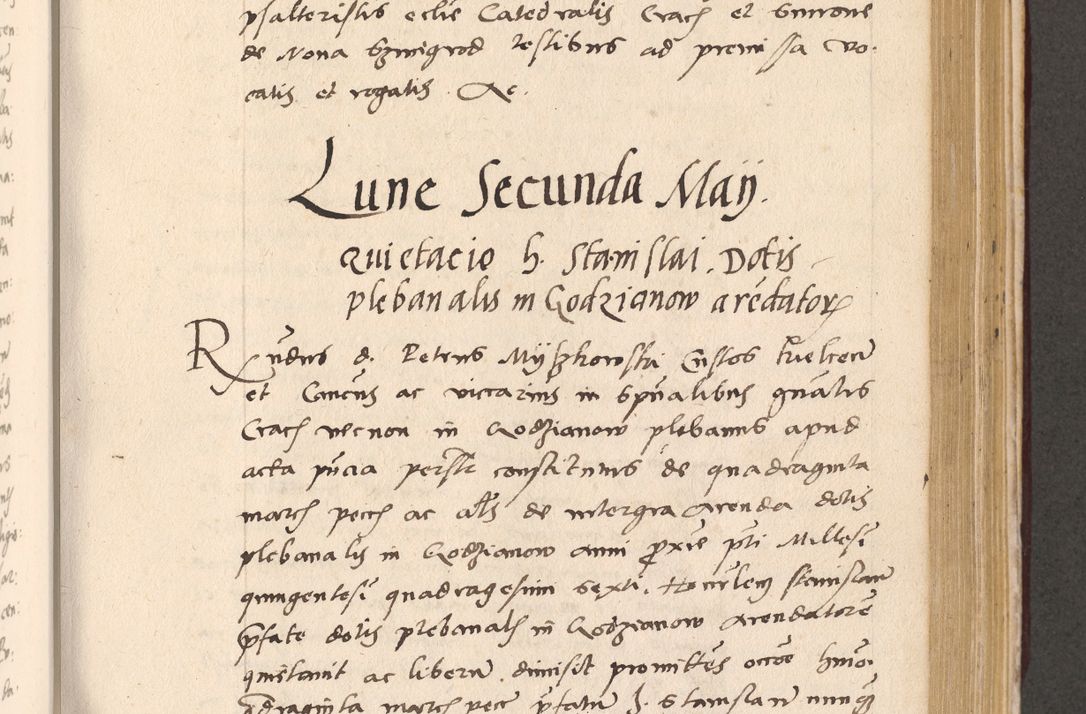 psalteristis eclie Catedralis Crac et Simone
de Nona Szmigrod testibus ad premissa vo-
catis et rogatis &c.
Lune Secunda Maÿ.
Quietacio h. Stanislai. Dotis
plebanalis in Godzianow arēdator
Rndus d. Petrus Mÿszkowski Custos
et Cancus ac viccarius in spualibus gnalis
Crac necnon in Godzianow plebanus apud
acta pncia persr constitutus de quadraginta
marc pecc ac als de intergra arenda dotis
plebanalis in Godzianow anni proxie pti Millesi
quingentesi quadragesimi sexti. Honlem Stanislaum
pfate dotis plebanals in Godzianow arendatore
quittauit ac liberu dimisit promittes occoe hmoi
adraginta marc pecc pfatu h. Stanislau nunq